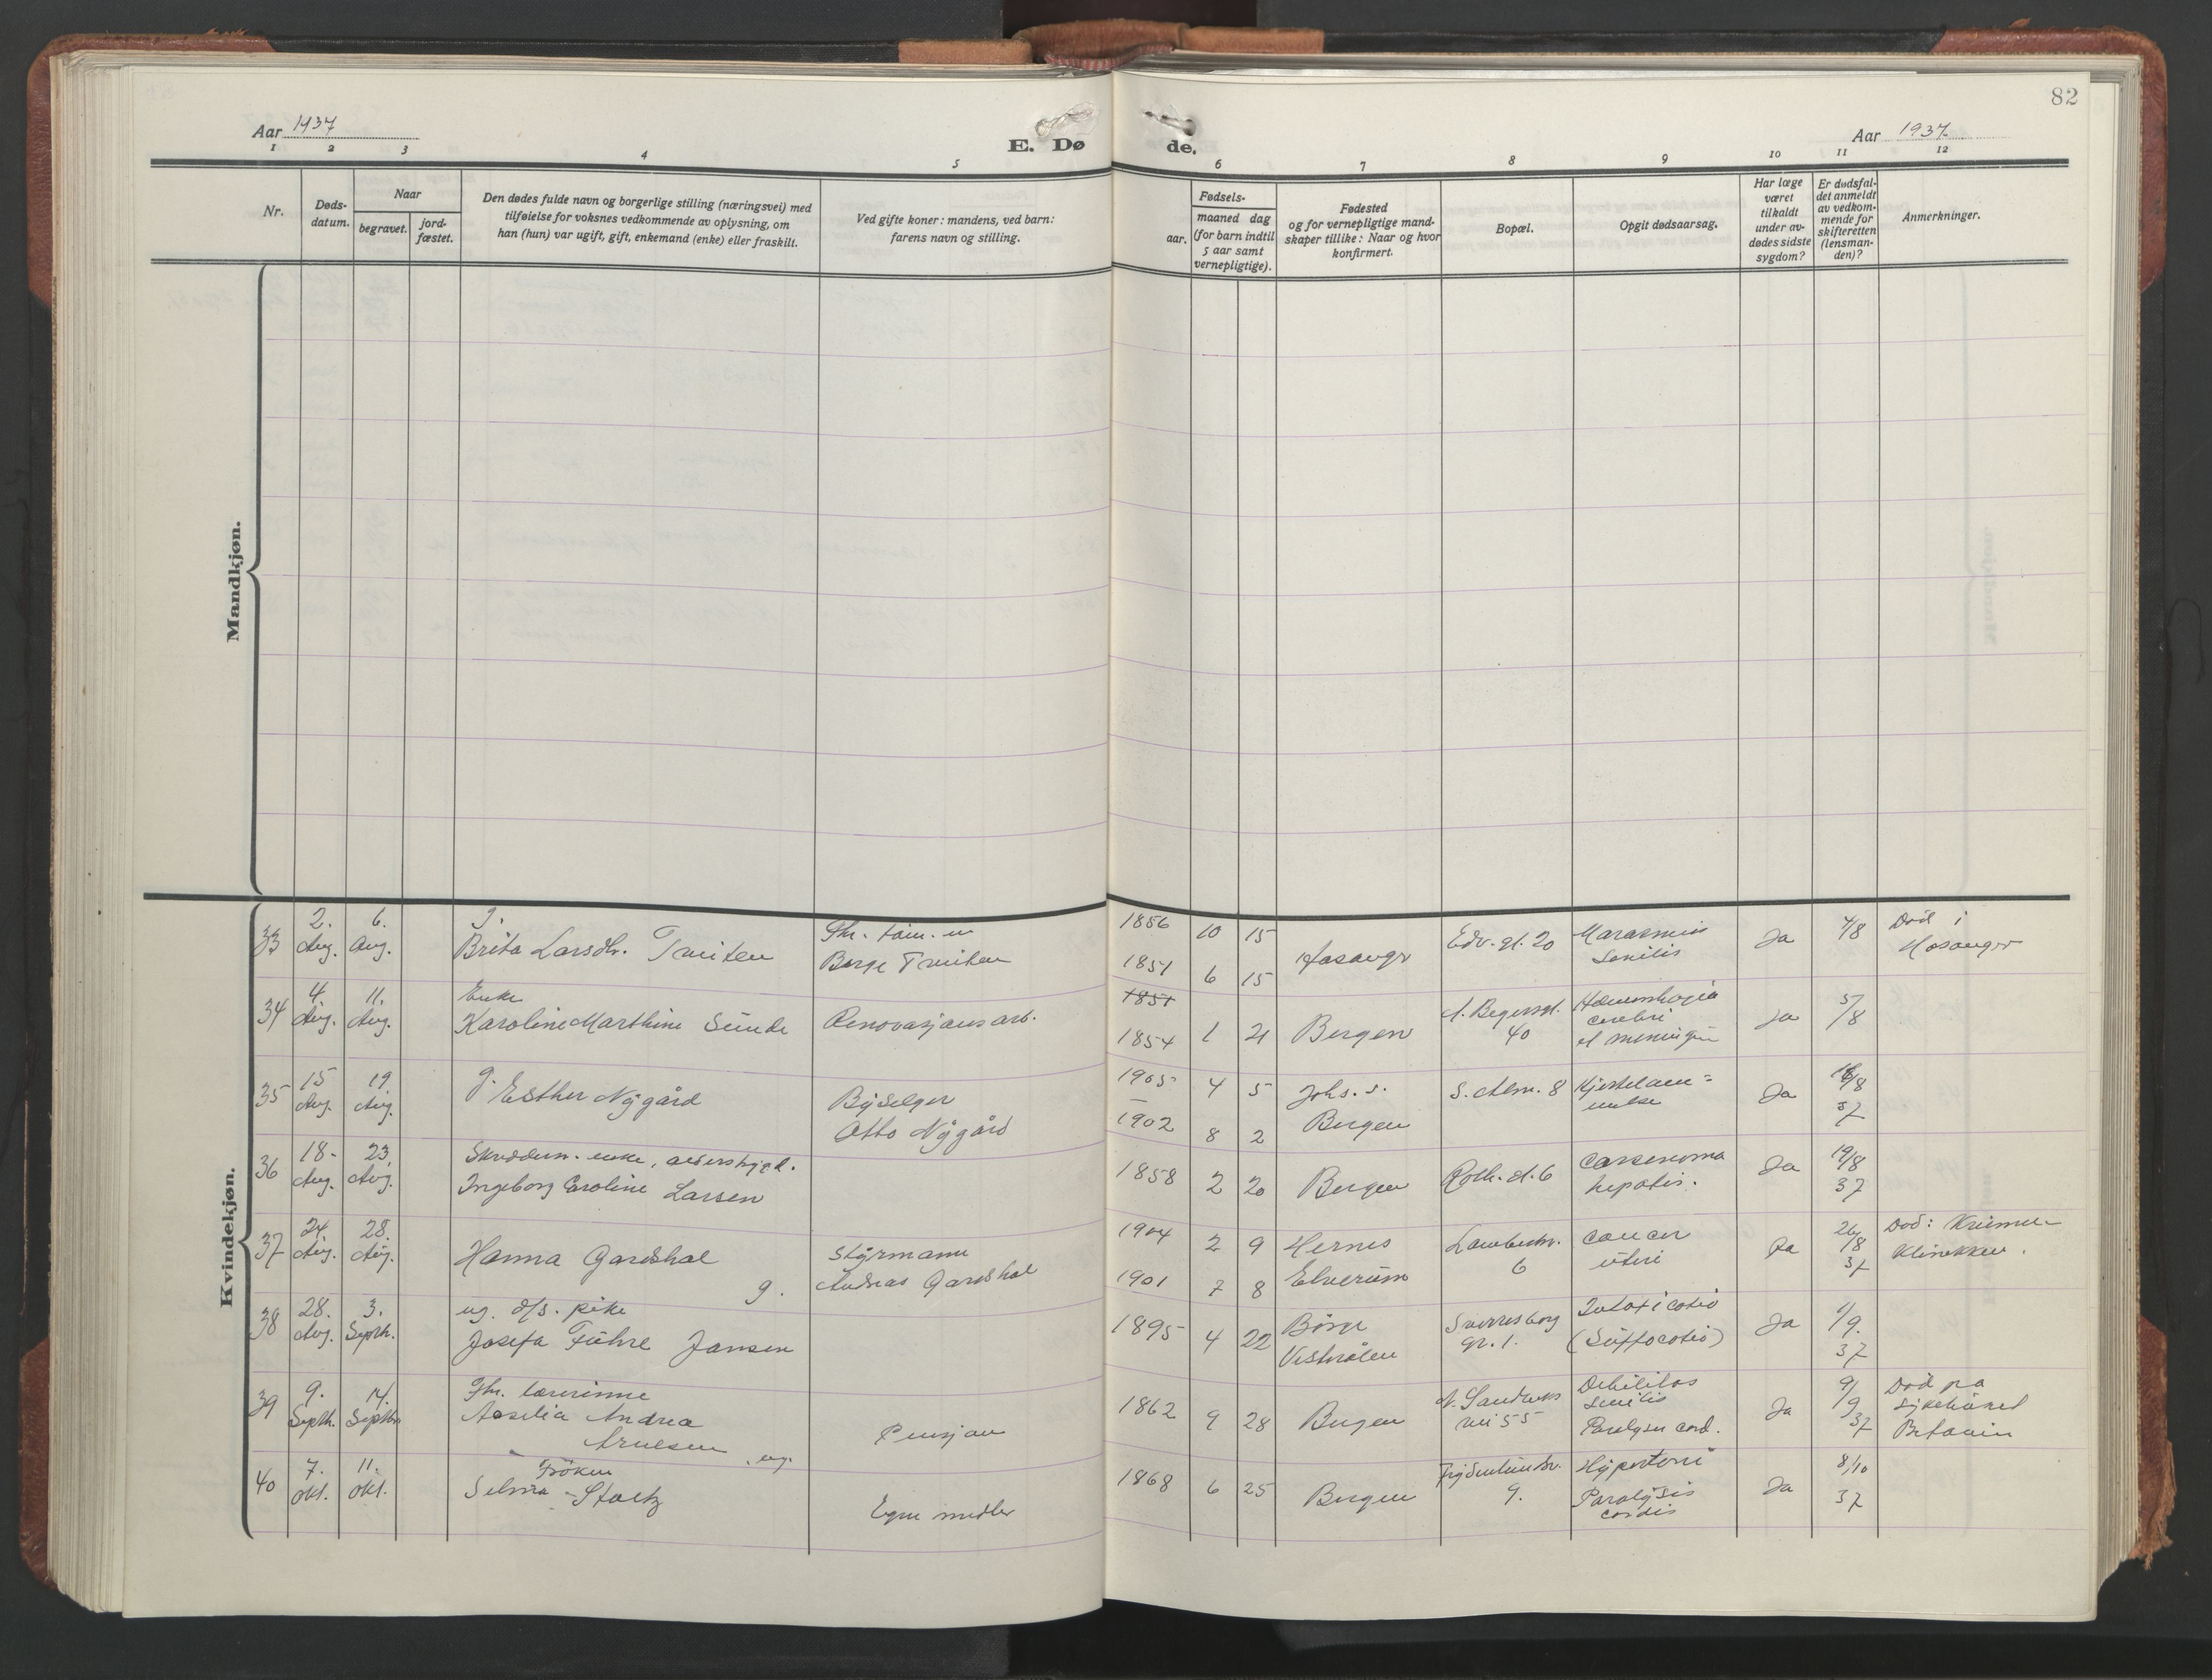 82
Aar 1937
E. Dø de.
Aar 1937
1 2 3 4 5 6 7 8 9 10 11 12
Nr.
Døds-
datum.
Naar
begravet.
jord-
fæstet.
Den dødes fulde navn og borgerlige stilling (næringsvei) med
tilføielse for voksnes vedkommende av oplysning, om
han (hun) var ugift, gift, enkemand (enke) eller fraskilt.
Ved gifte koner: mandens, ved barn:
farens navn og stilling.
Fødsels-
aar.
maaned dag
(for barn indtil
5 aar samt
vernepligtige).
Fødested
og for vernepligtige mand-
skaper tillike: Naar og hvor
konfirmert.
Bopæl.
Opgit dødsaarsag.
Har læge
været
tilkaldt
under av-
dødes sidste
sygdom?
Er dødsfal-
det anmeldt
av vedkom-
mende for
skifteretten
(lensman-
den)?
Anmerkninger.
Mandkjøn.
Kvindekjøn.
33 2. Aug. 6. Aug.
g.
Brita Larsdtr. Tveiten
Fhr. tøm.
Børge Tveiten
1856 10 15
1851 6 15
Hosangr
Edv. gt. 20
Marasmus
Senilis
Ja 4/8
Død i
Hosanger
34 4. Aug. 11. Aug.
Enke
Karoline Marthine Sunde
Renovasjonsarb.
1851
1854 1 21
Bergen
40
Hæmorrhagia
cerebri
et
Ja 5/8
35 15 Aug. 19. Aug.
g. Esther Nygård
Otto Nygård
1905 4 5
1902 8 2
Johs. s.
Bergen
S. Alm. 8
Ja 16/8
37
36 18- Aug. 23. Aug.
enke,
Ingeborg Caroline Larsen
1858 2 20
Bergen
6
Carsenoma
hepatis.
Ja 19/8
37
37 24. Aug. 28. Aug.
Hanna Gardshol g.
Styrmann
Andreas Gardshol
1904 2 9
1901 7 8
Hernes
Elverum
6
cancer
uteri
Ja 26/8
37
Død: Kvinne-
klinikken.
38 28. Aug. 3. Septb.
ug. pike
Josefa Führe Jansen
1895 4 22
Vesterålen
Sverresborg
gr. 1.
Intoxicatio
(Suffocatio)
Ja 1/9.
37
39 9. Septb. 14. Septbr
Fhr. lærerinne
Andrea
Arnesen, ug.
Pensjon
1862 9 28
Bergen
N. Sandviks
vei 55
Debilitas
senilis
Paralysis cord.
Ja 9/9
37
Død på
sykehuset
Betanien
40 7. Okt. 11. Okt.
Frøken
Selma Stoltz
Egne midler
1868 6 25
Bergen
9.
Hypertoni
Paralysis
cordis
Ja 8/10
37